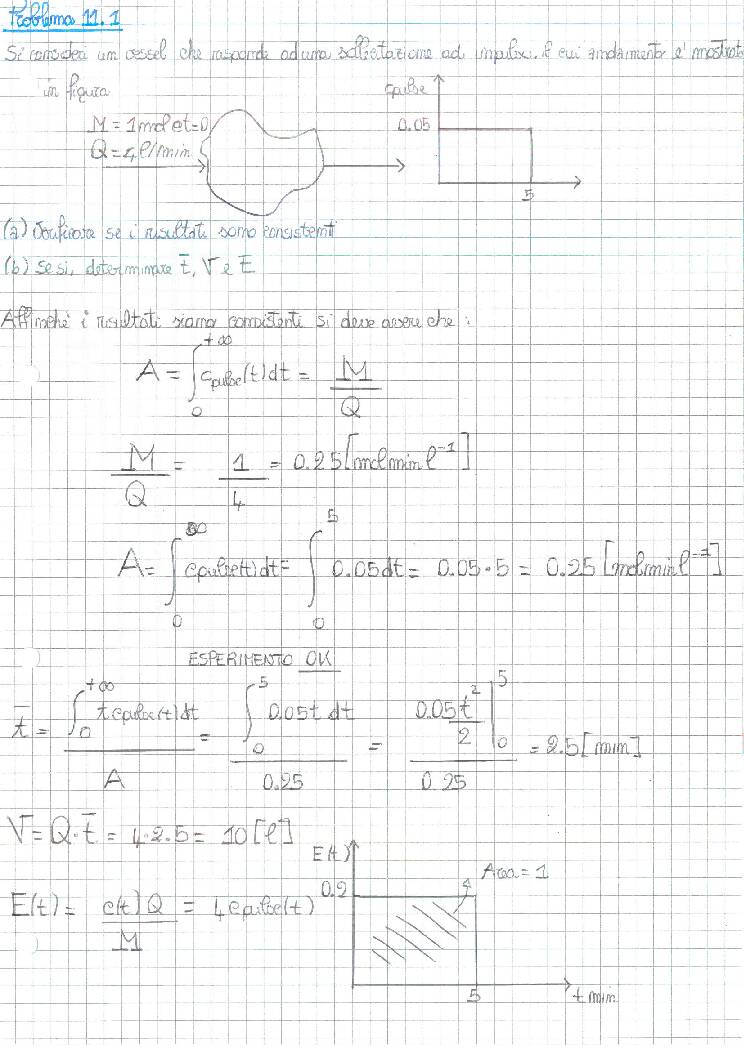 Problema 11.1
Si consideri un vessel che risponde ad una sollecitazione ad impulso il cui andamento e' mostrato
in figura
cpulse
M = 1mol et=0
0.05
Q = 4 l/min
5
(a) Verificare se i risultati sono consistenti
(b) Se si, determinare t̄, V e E
Affinchè i risultati siano consistenti si deve avere che :
A = ∫₀^{+∞} cpulse(t)dt = M/Q
M/Q = 1/4 = 0.25 [mol min l⁻¹]
A = ∫₀^∞ cpulse(t)dt = ∫₀^5 0.05dt = 0.05·5 = 0.25 [mol min l⁻¹]
ESPERIMENTO OK
t̄ = ∫₀^{+∞} t cpulse(t)dt / A = ∫₀^5 0.05t dt / 0.25 = 0.05 t²/2 |₀^5 / 0.25 = 2.5 [min]
V = Q·t̄ = 4·2.5 = 10 [l]
E(t)
Area = 1
0.2
E(t) = c(t) Q / M = 4 cpulse(t)
5
t min